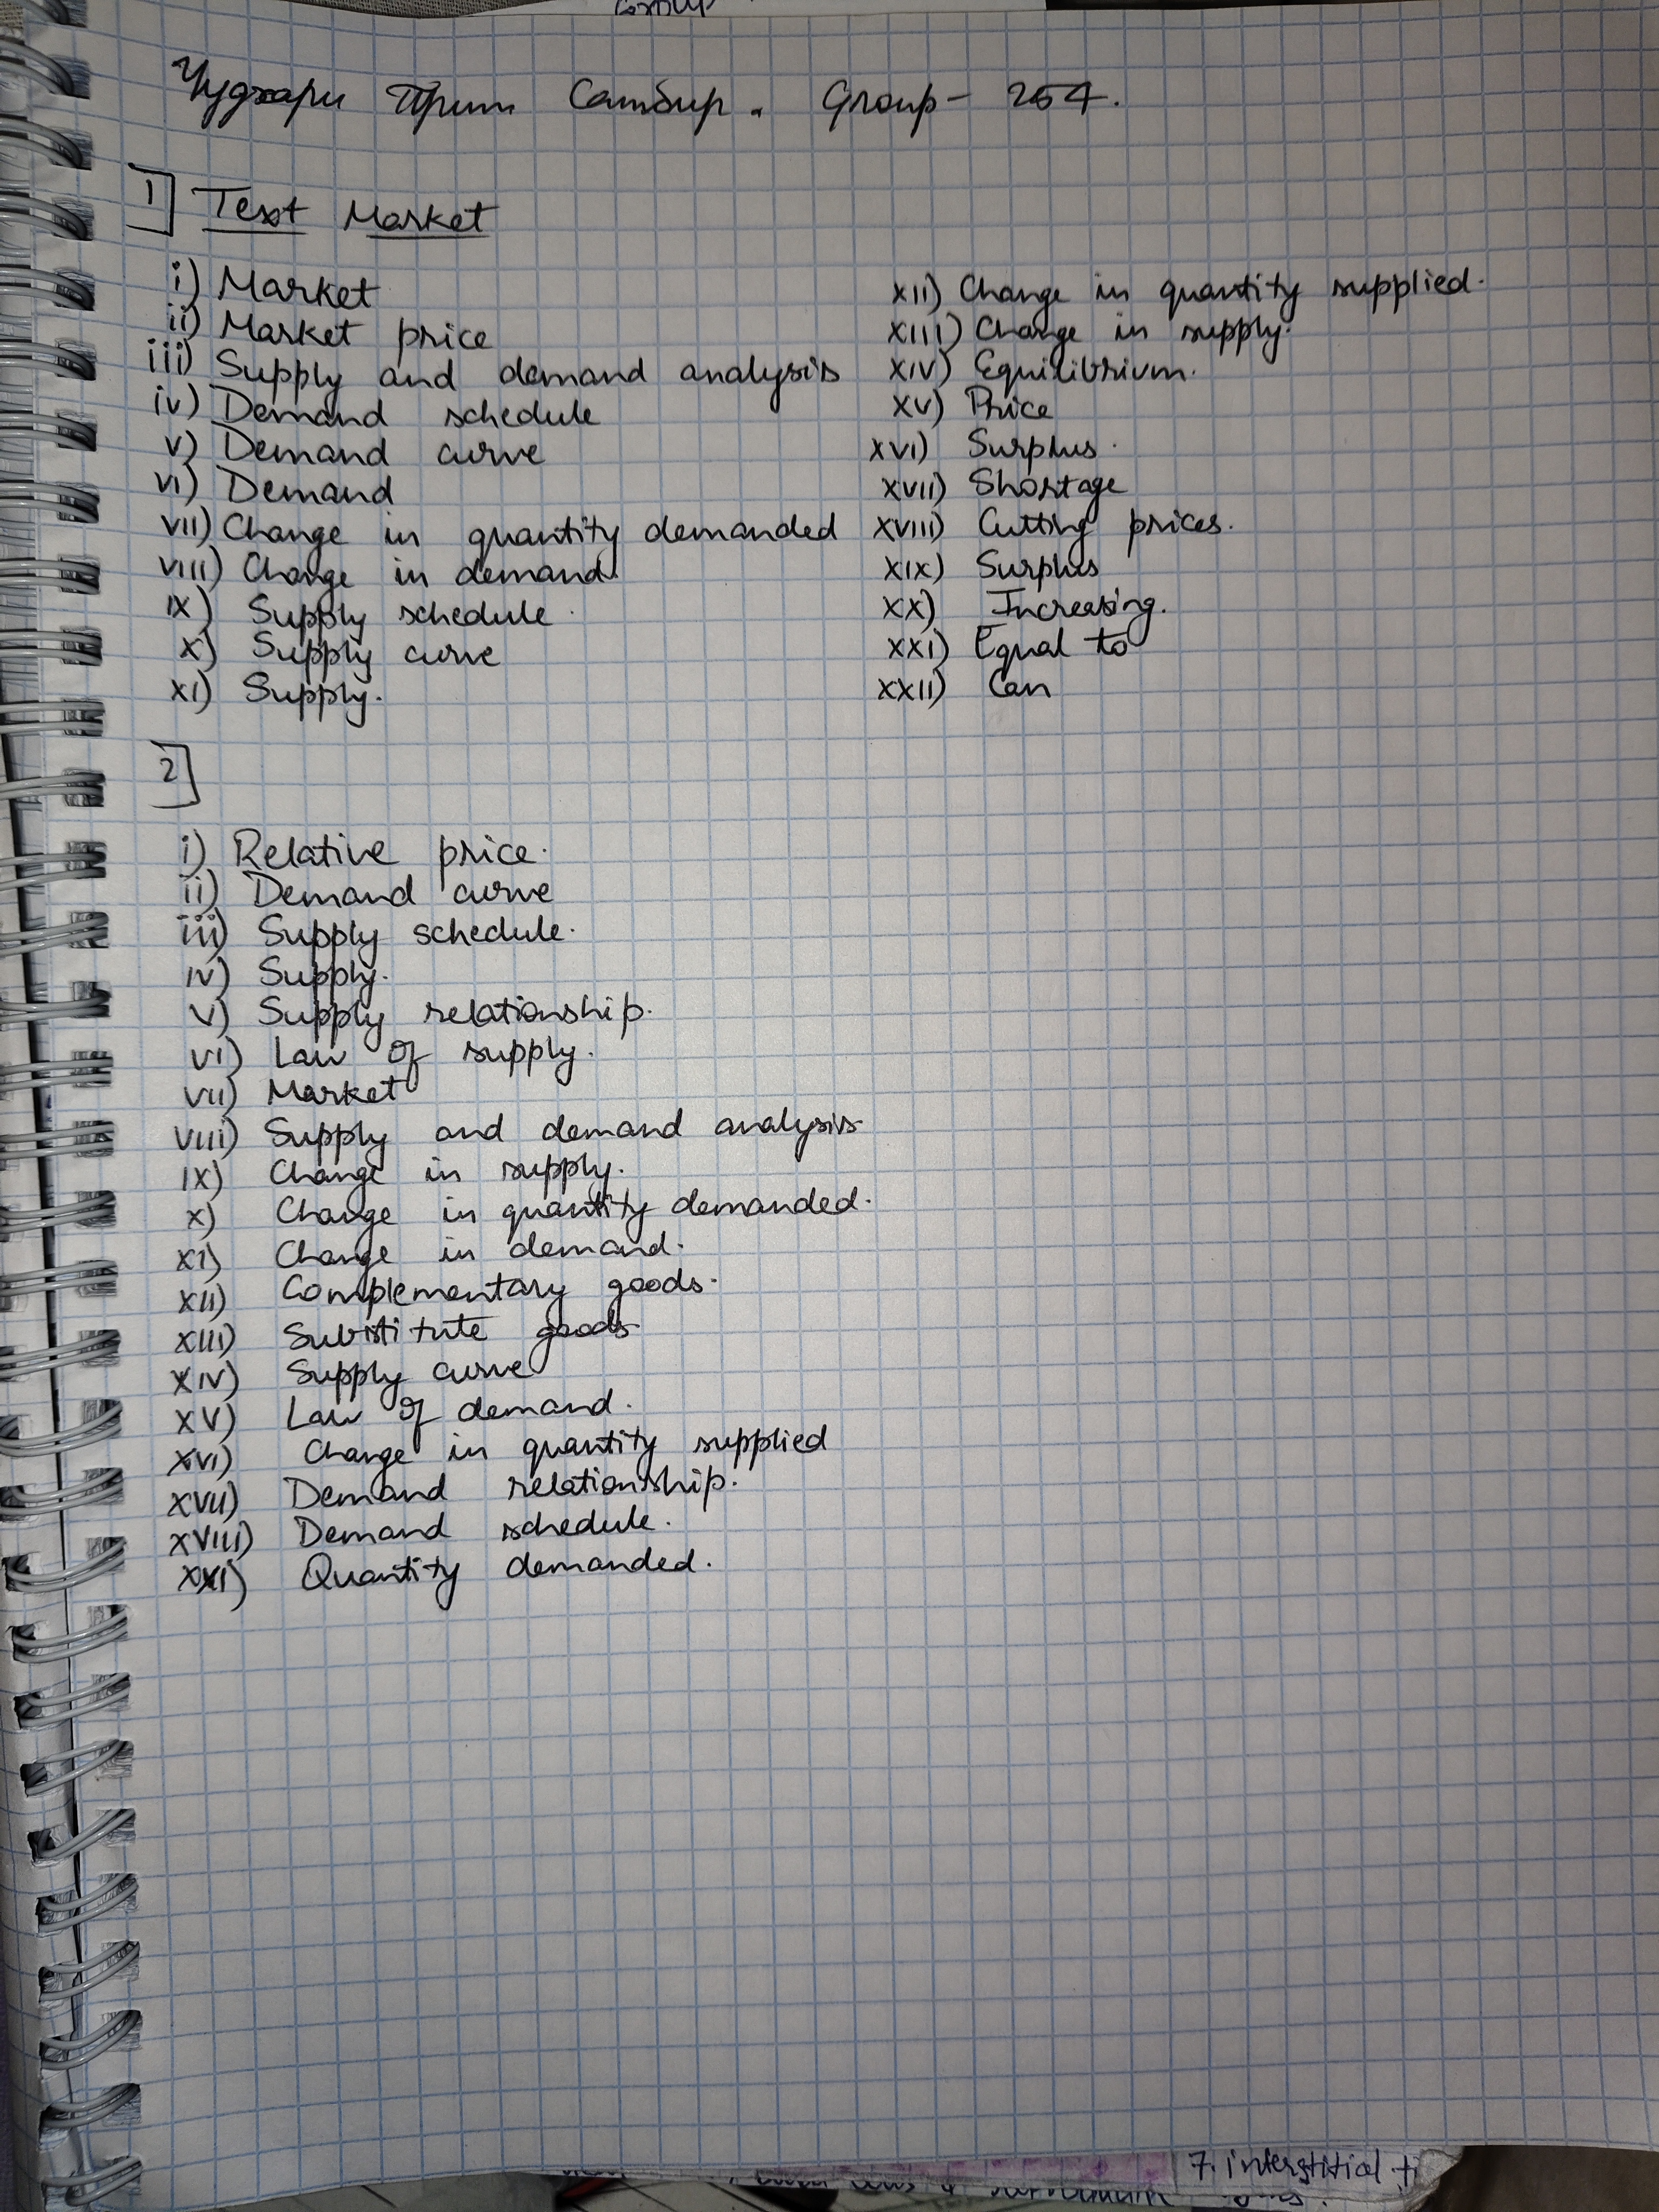 Group
Чудхари Прити Сатбир. Group - 254.
1] Text Market
i) Market
ii) Market price
iii) Supply and demand analysis
iv) Demand schedule
v) Demand curve
vi) Demand
vii) Change in quantity demanded
viii) Change in demand.
ix) Supply schedule.
x) Supply curve
xi) Supply.
xii) Change in quantity supplied.
xiii) Change in supply.
xiv) Equilibrium.
xv) Price
xvi) Surplus.
xvii) Shortage
xviii) Cutting prices.
xix) Surplus
xx) Increasing.
xxi) Equal to
xxii) Can
2]
i) Relative price.
ii) Demand curve
iii) Supply schedule.
iv) Supply.
v) Supply relationship.
vi) Law of supply.
vii) Market
viii) Supply and demand analysis
ix) Change in supply.
x) Change in quantity demanded.
xi) Change in demand.
xii) Complementary goods.
xiii) Substitute goods
xiv) Supply curve
xv) Law of demand.
xvi) Change in quantity supplied
xvii) Demand relationship.
xviii) Demand schedule.
xxi) Quantity demanded.
7. interstitial